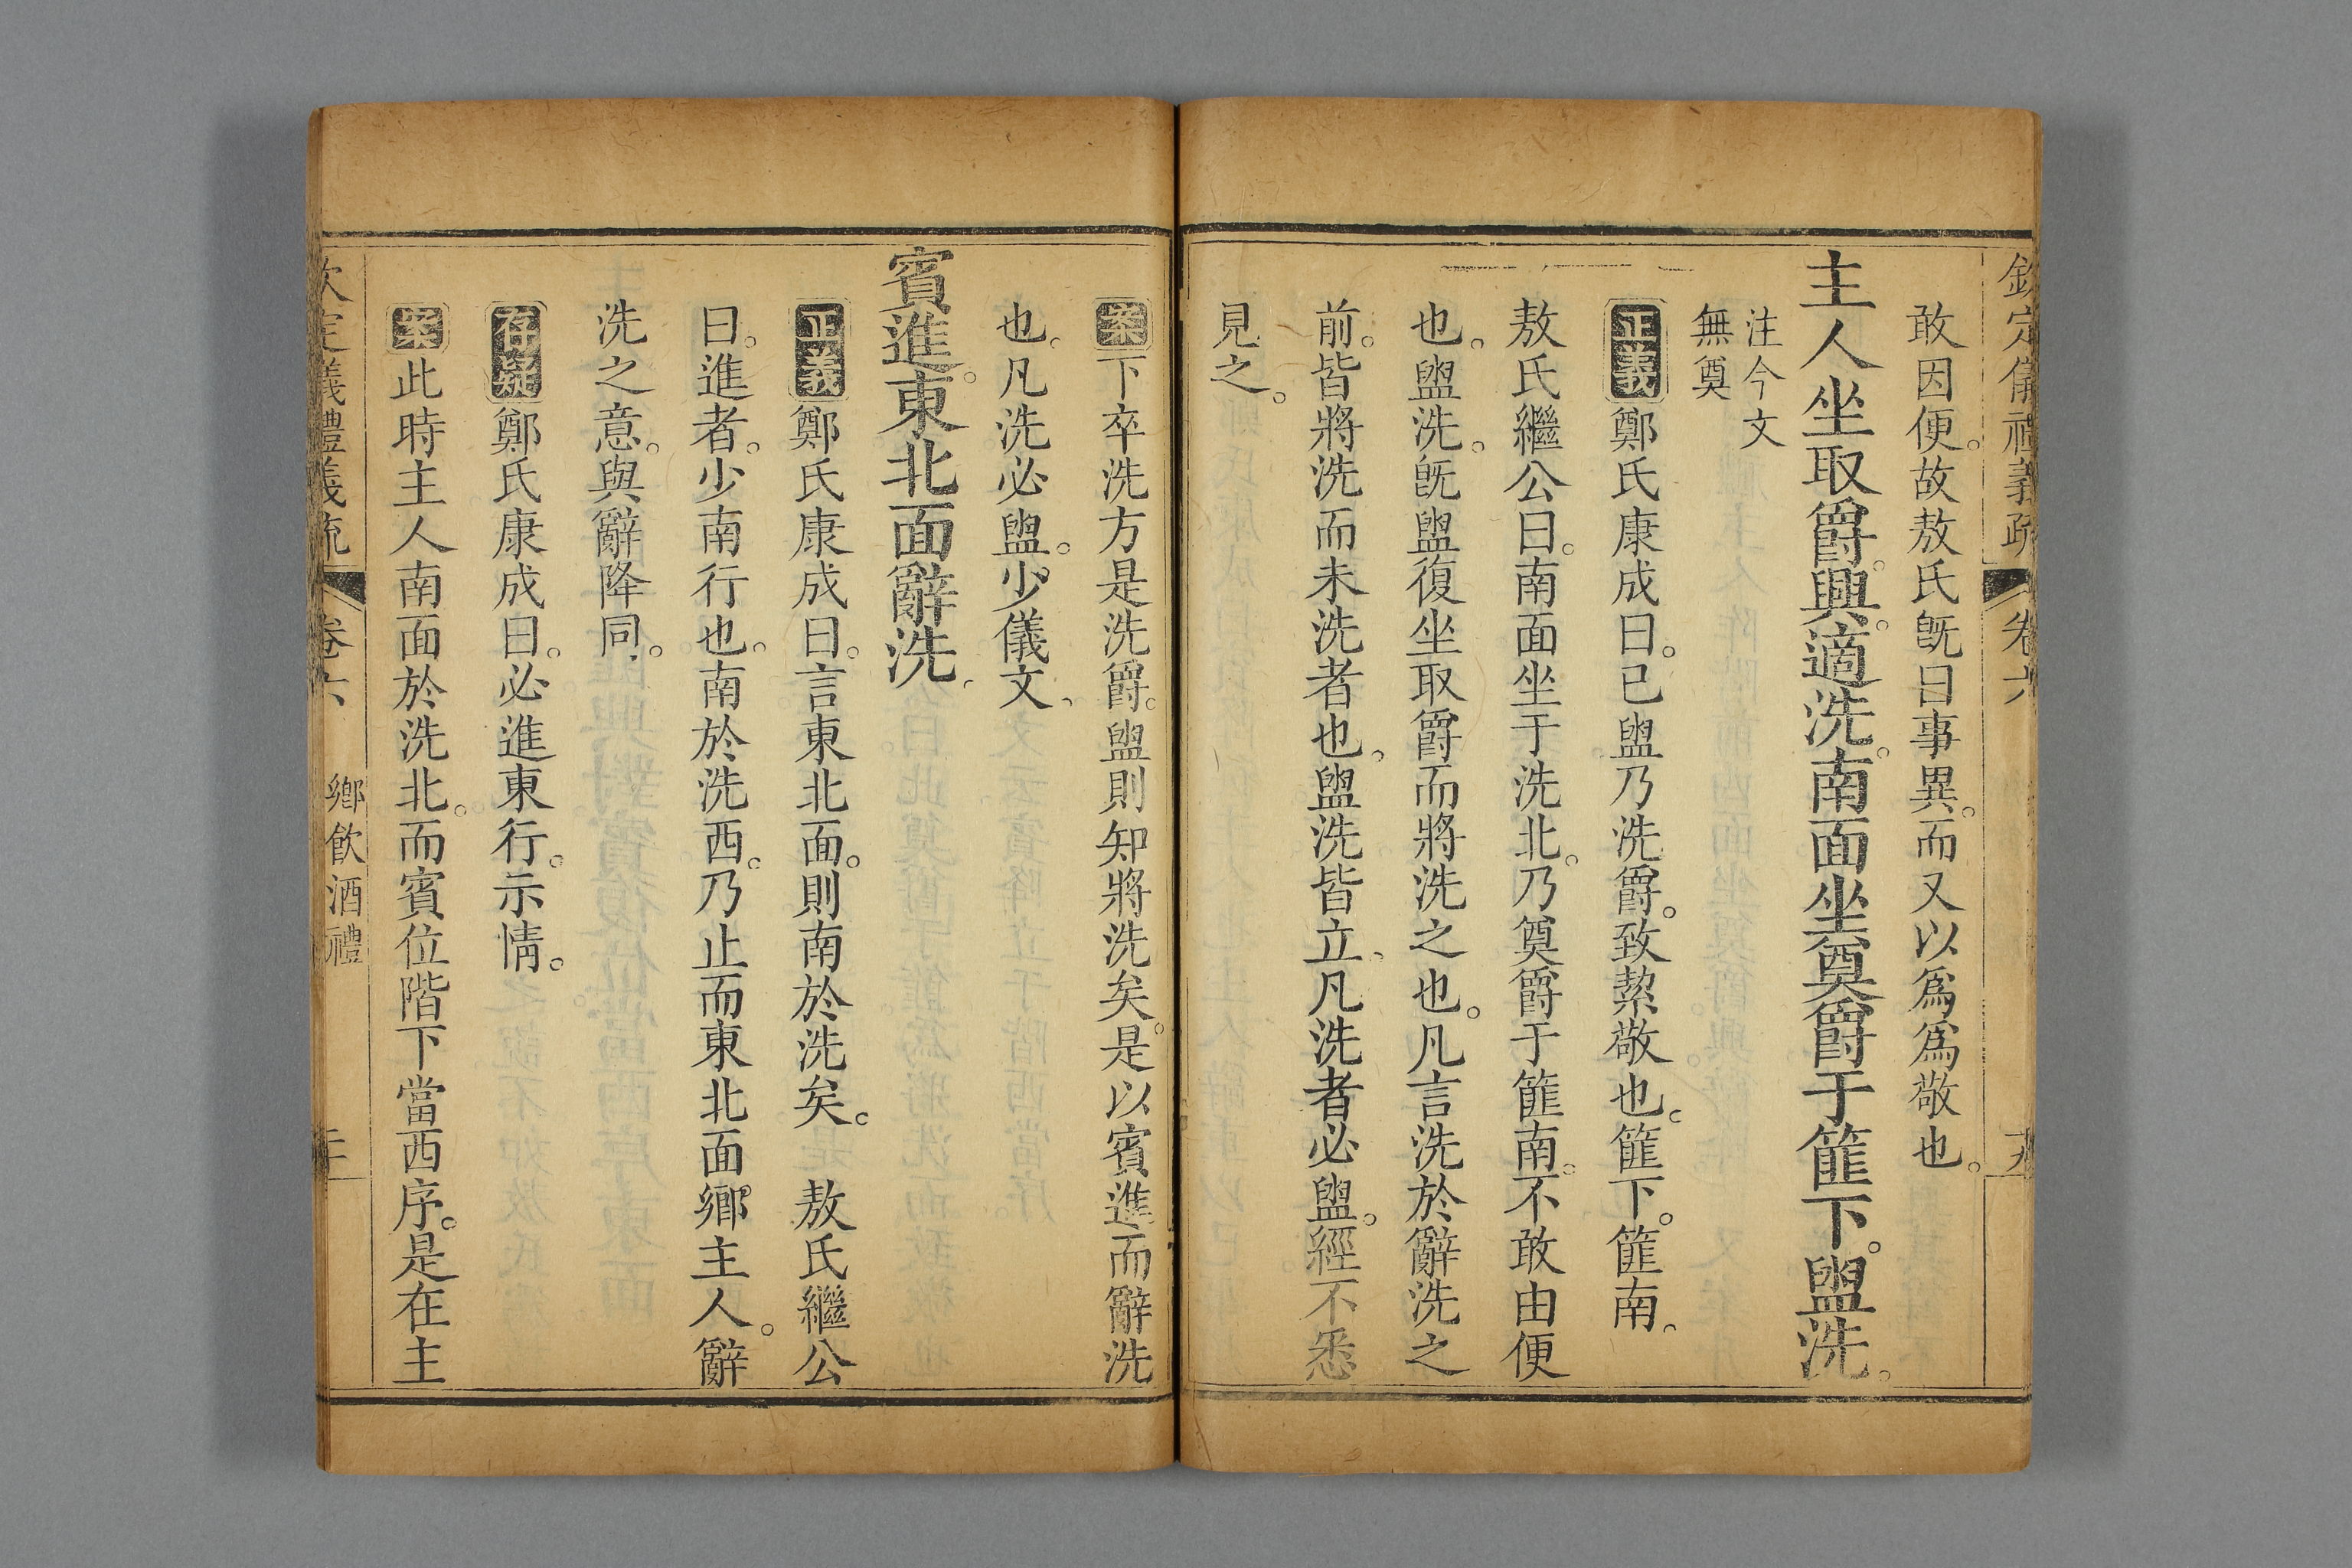 欽定儀禮義疏 卷六
敢因便。故敖氏旣曰事異。而又以爲爲敬也。
主人坐取爵。興。適洗。南面坐奠爵于篚下。盥洗。
注今文
無奠
正義鄭氏康成曰。已盥乃洗爵。致絜敬也。篚下。篚南、
敖氏繼公曰。南面坐于洗北。乃奠爵于篚南。不敢由便
也。盥洗。旣盥復坐取爵而將洗之也。凡言洗於辭洗之
前。皆將洗而未洗者也、盥洗皆立、凡洗者必盥。經不悉
見之。
案下卒洗方是洗爵。盥則知將洗矣。是以賓進而辭洗
也、凡洗必盥。少儀文、
賓進。東北面辭洗、
正義鄭氏康成曰。言東北面。則南於洗矣。 敖氏繼公
曰。進者。少南行也。南於洗西。乃止而東北面鄉主人。辭
洗之意。與辭降同。
存疑鄭氏康成曰。必進東行。示情。
案此時主人南面於洗北。而賓位階下當西序。是在主
欽定儀禮義疏 卷六 鄉飲酒禮